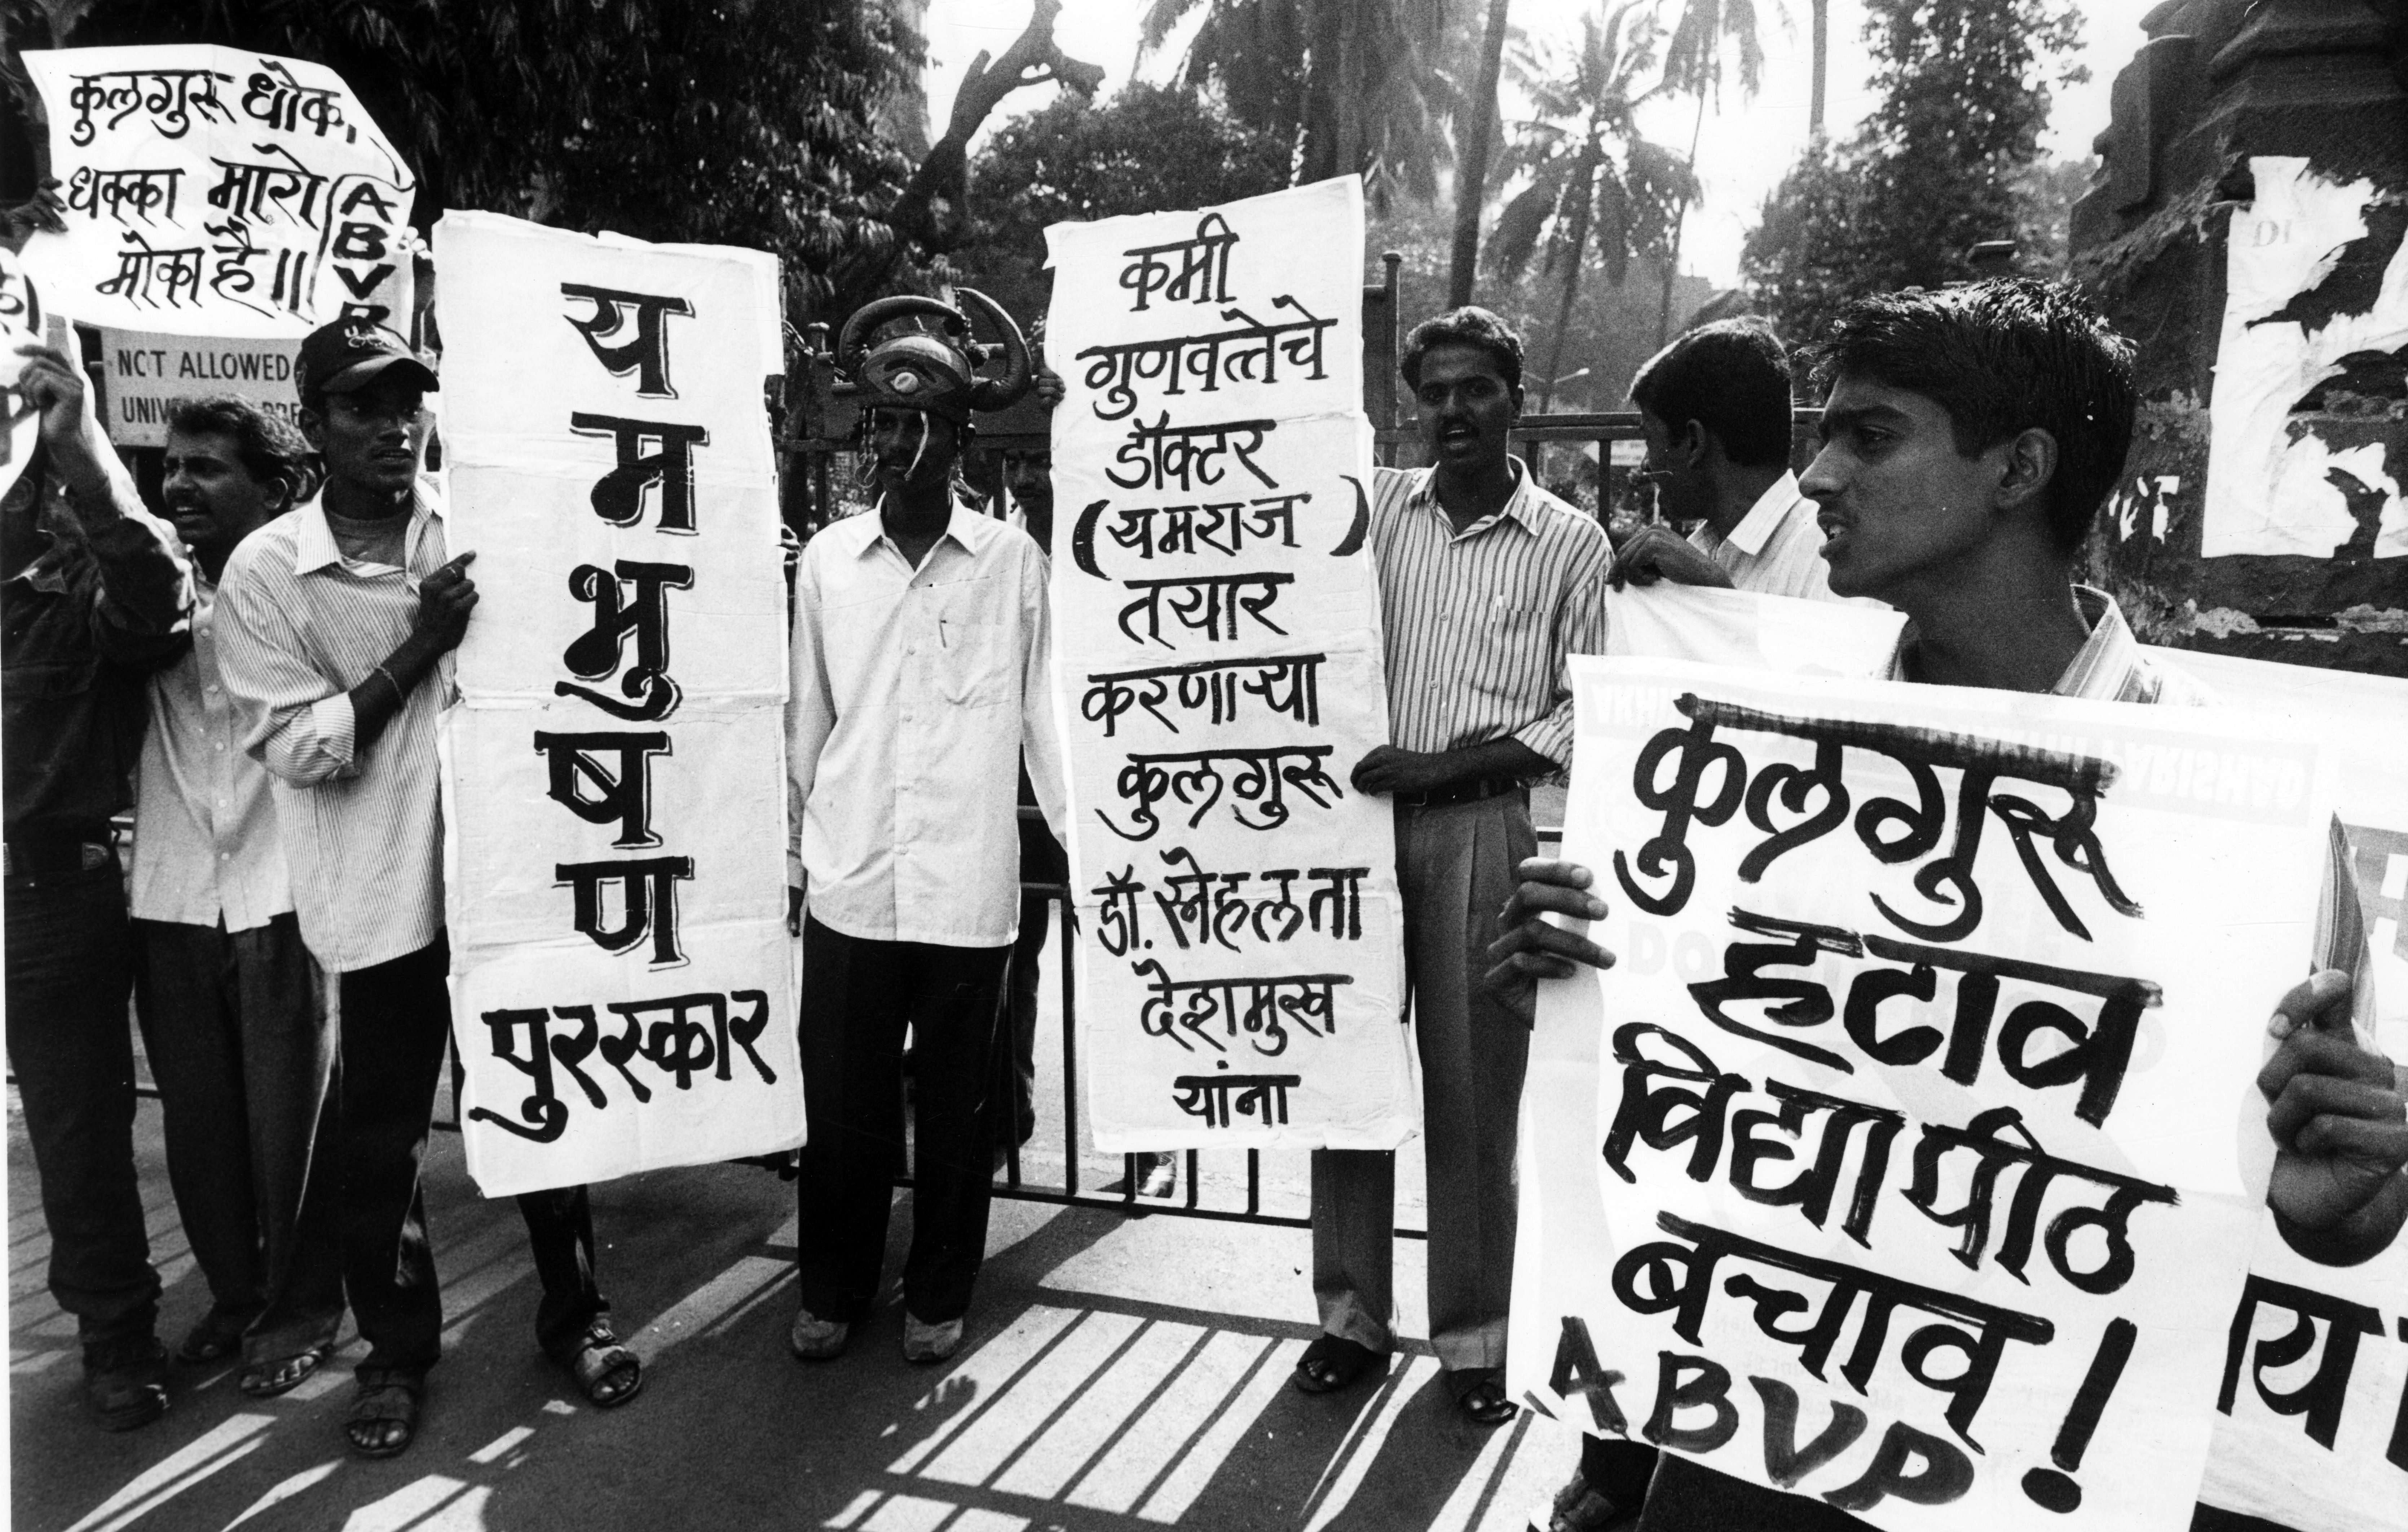 कुलगुरू धोक,
धक्का मारो
मोका है॥
A
B
V
P
NCT ALLOWED
य
म
भु
ष
ण
पुरस्कार
कमी
गुणवत्तेचे
डॉक्टर
(यमराज)
तयार
करणाऱ्या
कुलगुरू
डॉ. स्नेहलता
देशमुख
यांना
DI
कुलगुरू
हटाव
विद्यापीठ
बचाव!
ABVP